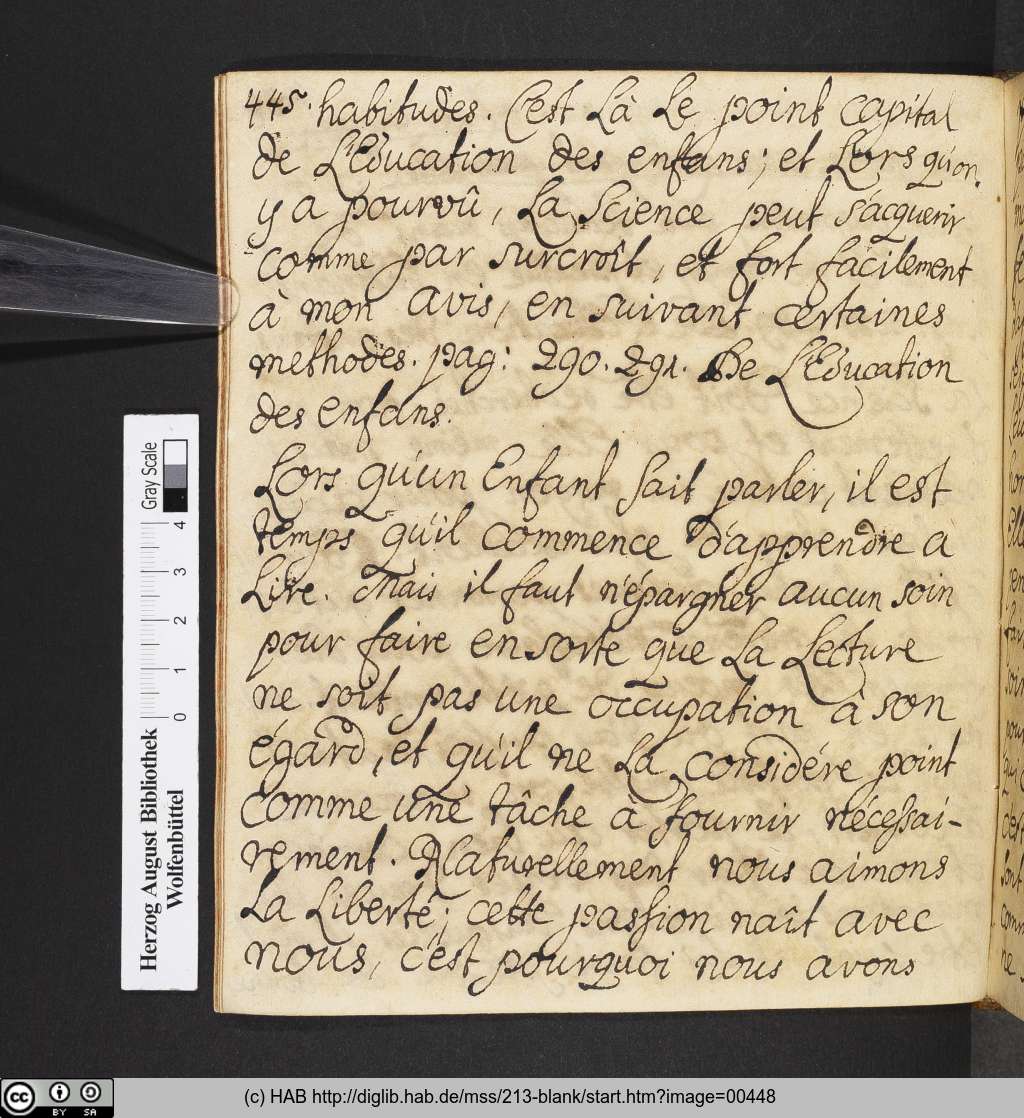 445. habitudes. C'est Là Le point capital
de L'Education des enfans; et Lors qu'on
y a pourvû, La Science peut s'acquerir
comme par surcroît, et fort facilement
à mon avis, en suivant certaines
methodes. pag: 290. 291. De L'Education
des enfans.
Lors qu'un Enfant sait parler, il est
temps qu'il commence d'apprendre à
Lire. Mais il faut n'épargner aucun soin
pour faire en sorte que La Lecture
ne soit pas une occupation à son
égard, et qu'il ne La considére point
comme une tâche à fournir nécessai-
rement. Naturellement nous aimons
La Liberté; cette passion naît avec
nous, c'est pourquoi nous avons
Gray Scale
4
3
2
1
0
Herzog August Bibliothek
Wolfenbüttel
cc BY SA
(c) HAB http://diglib.hab.de/mss/213-blank/start.htm?image=00448